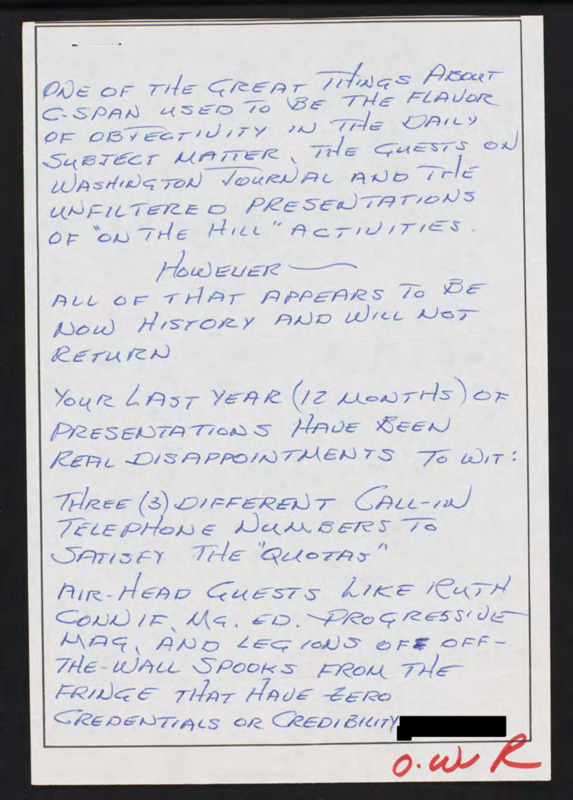 ONE OF THE GREAT THINGS ABOUT
C-SPAN USED TO BE THE FLAVOR
OF OBJECTIVITY IN THE DAILY
SUBJECT MATTER, THE GUESTS ON
WASHINGTON JOURNAL AND THE
UNFILTERED PRESENTATIONS
OF "ON THE HILL" ACTIVITIES.
HOWEVER —
ALL OF THAT APPEARS TO BE
NOW HISTORY AND WILL NOT
RETURN
YOUR LAST YEAR (12 MONTHS) OF
PRESENTATIONS HAVE BEEN
REAL DISAPPOINTMENTS TO WIT:
THREE (3) DIFFERENT CALL-IN
TELEPHONE NUMBERS TO
SATISFY THE "QUOTAS"
AIR-HEAD GUESTS LIKE RUTH
CONNIF, MG. ED. PROGRESSIVE
MAG, AND LEGIONS OF OFF-
THE-WALL SPOOKS FROM THE
FRINGE THAT HAVE ZERO
CREDENTIALS OR CREDIBILITY
O.W R